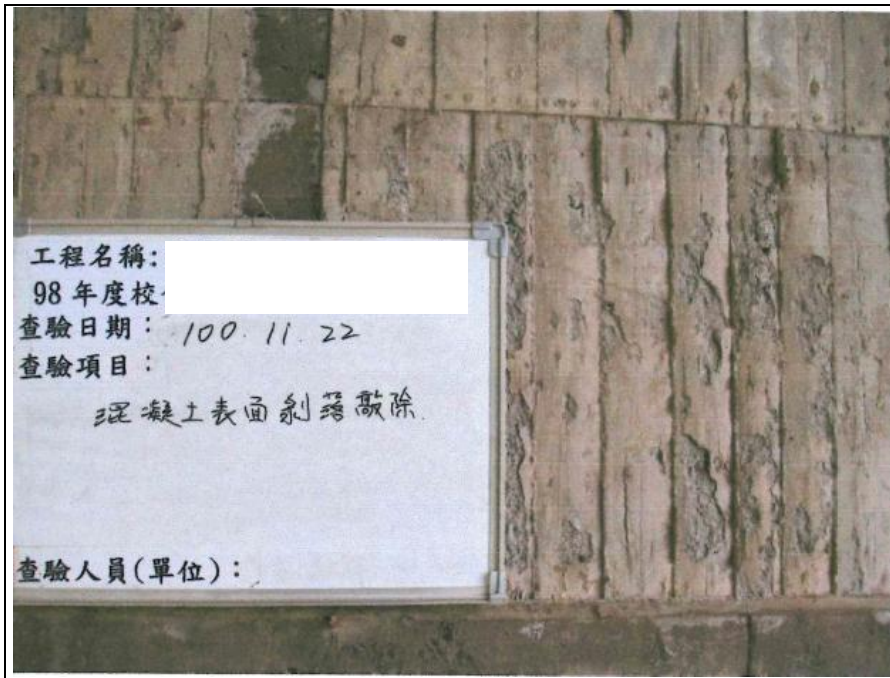 工程名稱:
98 年度校
查驗日期： 100. 11. 22
查驗項目：
混凝土表面剝落敲除
查驗人員(單位)：